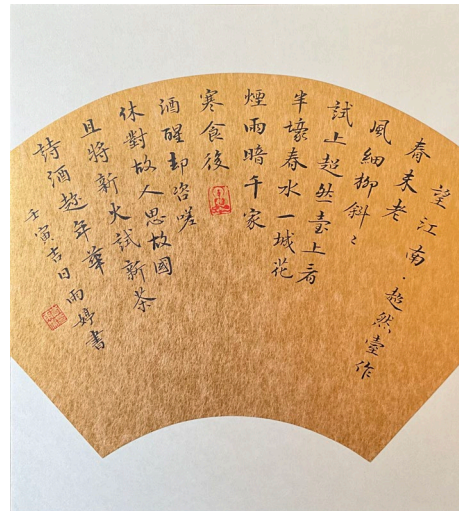 望江南·超然臺作
春未老
風細柳斜斜
試上超然臺上看
半壕春水一城花
煙雨暗千家
寒食後
酒醒却咨嗟
休對故人思故國
且將新火試新茶
詩酒趁年華
壬寅吉日雨婷書